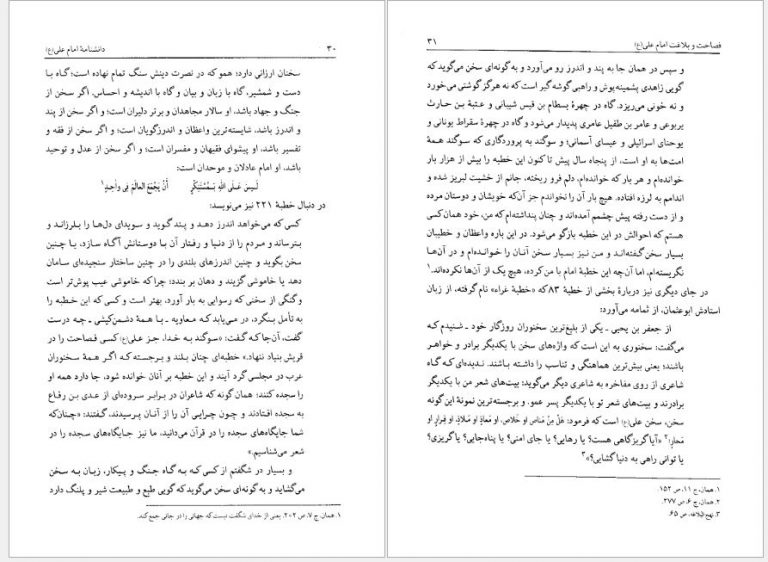 ۳۰
دانشنامهٔ امام علی(ع)
سخنان ارزانی دارد؛ هموکه در نصرت دینش سنگ تمام نهاده است؛ گاه با
دست و شمشیر، گاه با زبان و بیان و گاه با اندیشه و احساس. اگر سخن از
جنگ و جهاد باشد، او سالار مجاهدان و برتر دلیران است؛ و اگر سخن از پند
و اندرز باشد، شایسته‌ترین واعظان و اندرزگویان است؛ و اگر سخن از فقه و
تفسیر باشد، او پیشوای فقیهان و مفسران است؛ و اگر سخن از عدل و توحید
باشد، او امام عادلان و موحدان است:
لَیسَ عَـلَی اللهِ بِـمُستَنکَرٍ أنْ یَجْمَعَ العالَمَ فی واحِدٍ۱
در دنبال خطبهٔ ۲۲۱ نیز می‌نویسد:
کسی که می‌خواهد اندرز دهـد و پـند گـوید و سـویدای دل‌هـا را بـلرزاند و
بترساند و مـردم را از دنـیا و رفـتار آن بـا دوسـتانش آگـاه سـازد، یـا چـنین
سخن بگوید و چنین اندرزهای بلندی را در چنین ساختار سنجیده‌ای سامان
دهد یا خاموشی گزیند و دهان بر بندد؛ چرا که خاموشی عیب پوش‌تر است
و گنگی از سخنی که رسوایی به بار آورد، بهتر است و کسی که این خـطبه را
به تأمل بـنگرد، در مـی‌یابد کـه مـعاویه ـ بـا هـمهٔ دشـمن‌کیشی ـ چـه درست
گفت، آن‌جا کـه گـفت: «سـوگند بـه خـدا، جـز عـلی(ع) کسـی فـصاحت را در
قریش بنیاد ننهاد.» خطبه‌ای چنان بـلند و بـرجسـته کـه اگـر هـمهٔ سـخنوران
عرب در مجلسی گرد آیند و این خطبه بر آنان خوانده شود، جا دارد همه او
را سـجده کـنند؛ همان گونه که شاعران در بـرابـر سـروده‌ای از عـدی بـن رقـاع
به سـجده افـتادند و چـون چـرایی آن را از آنـان پـرسیدند، گـفتند: «چـنان‌که
شما جایگاه‌های سـجده را در قرآن می‌دانید، ما نیز جـایگاه‌های سـجده را در
شعر می‌شناسیم.»
و بسیار در شگفتم از کسـی کـه بـه گـاه جـنگ و پـیکار، زبـان بـه سـخن
می‌گشاید و به‌گونه‌ای سخن می‌گوید که گویی طبع و طبیعت شیر و پلنگ دارد
۱. همان، ج ۷، ص ۲۰۲. یعنی از خدای شگفت نیست که جهانی را در جانی جمع کند.
فصاحت و بلاغت امام علی(ع)
۳۱
و سپس در همان جا به پند و اندرز رو می‌آورد و به گونه‌ای سخن می‌گوید که
گویی زاهدی پشمینه‌پوش و راهبی گوشه گیر است که نه هرگز گوشتی می‌خورد
و نه خونی می‌ریزد. گاه در چهرهٔ بسطام بن قیس شیبانی و عـتبة بـن حـارث
یربوعی و عامر بن طفیل عامری پدیدار می‌شود و گاه در چهرهٔ سقراط یونانی و
یوحنای اسرائیلی و عیسای آسمانی؛ و سوگند به پروردگاری که سـوگند هـمهٔ
امت‌ها به او است، از پنجاه سال پیش تا کنون این خطبه را بیش از هـزار بار
خوانده‌ام و هر بار که خوانده‌ام، دلم فرو ریخته، جانم از خشیت لبریز شده و
اندامم به لرزه افتاده. هیچ بار آن را نخواندم جز آن‌که خویشان و دوستان مرده
و از دست رفته پیش چشمم آمده‌اند و چنان پنداشته‌ام که من، خود همان کسی
هستم که احوالش در این خطبه بازگو می‌شود. در این باره واعظان و خطیبان
بسیار سخن گفته‌انـد و مـن نـیز بسیار سـخن آنـان را خـوانـده‌ام و در آن‌هـا
نگریسته‌ام، اما آن‌چه این خطبهٔ امام با من کرده، هیچ یک از آن‌ها نکرده‌اند.۱
در جای دیگری نیز دربارهٔ بخشی از خطبهٔ ۸۳ که «خطبهٔ غراء» نام گرفته، از زبان
استادش ابوعثمان، از ثمامه می‌آورد:
از جعفر بن یحیی ـ یکی از بلیغ‌ترین سـخنوران روزگـار خود ـ شـنیدم کـه
می‌گفت: سخنوری به این است که واژه‌های سخن با یکدیگر برادر و خواهـر
باشند؛ یعنی بیش‌ترین هماهنگی و تناسب را داشـته بـاشند. نـدیده‌ای کـه گـاه
شاعری از روی مفاخره به شاعری دیگر می‌گوید: بیت‌های شعر من با یکدیگر
برادرند و بیت‌های شعر تو با یکدیگر پسر عمو. و برجسته‌ترین نمونهٔ این گونه
سخن، سخن علی(ع) است که فرمود: هَلْ مِنْ مَناصٍ او خَلاصٍ، او مَعاذٍ او مَلاذٍ، او فِرارٍ او
مَحارٍ؛۲ «آیا گریزگاهی هست؟ یا رهایی؟ یا جای امنی؟ یا پناه‌جایی؟ یا گریزی؟
یا توانی راهی به دنیا گشایی؟»۳
۱. همان، ج ۱۱، ص ۱۵۲
۲. همان، ج ۶، ص ۲۷۷
۳. نهج‌البلاغه، ص ۶۵